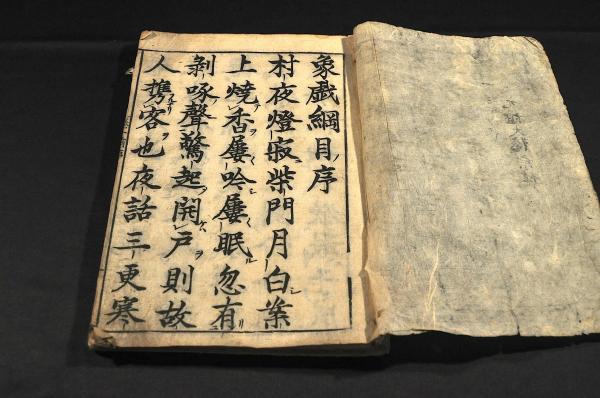 象戯綱目序
村夜燈寂柴門月白葉
上焼香屢吟屢眠忽有
剥啄聲驚起開戸則故
人携客也夜話三更寒